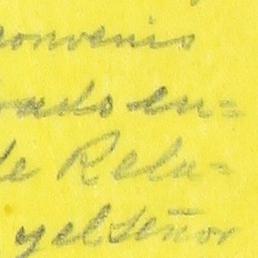 convenio
ado en=
de Rela-
y el Señor